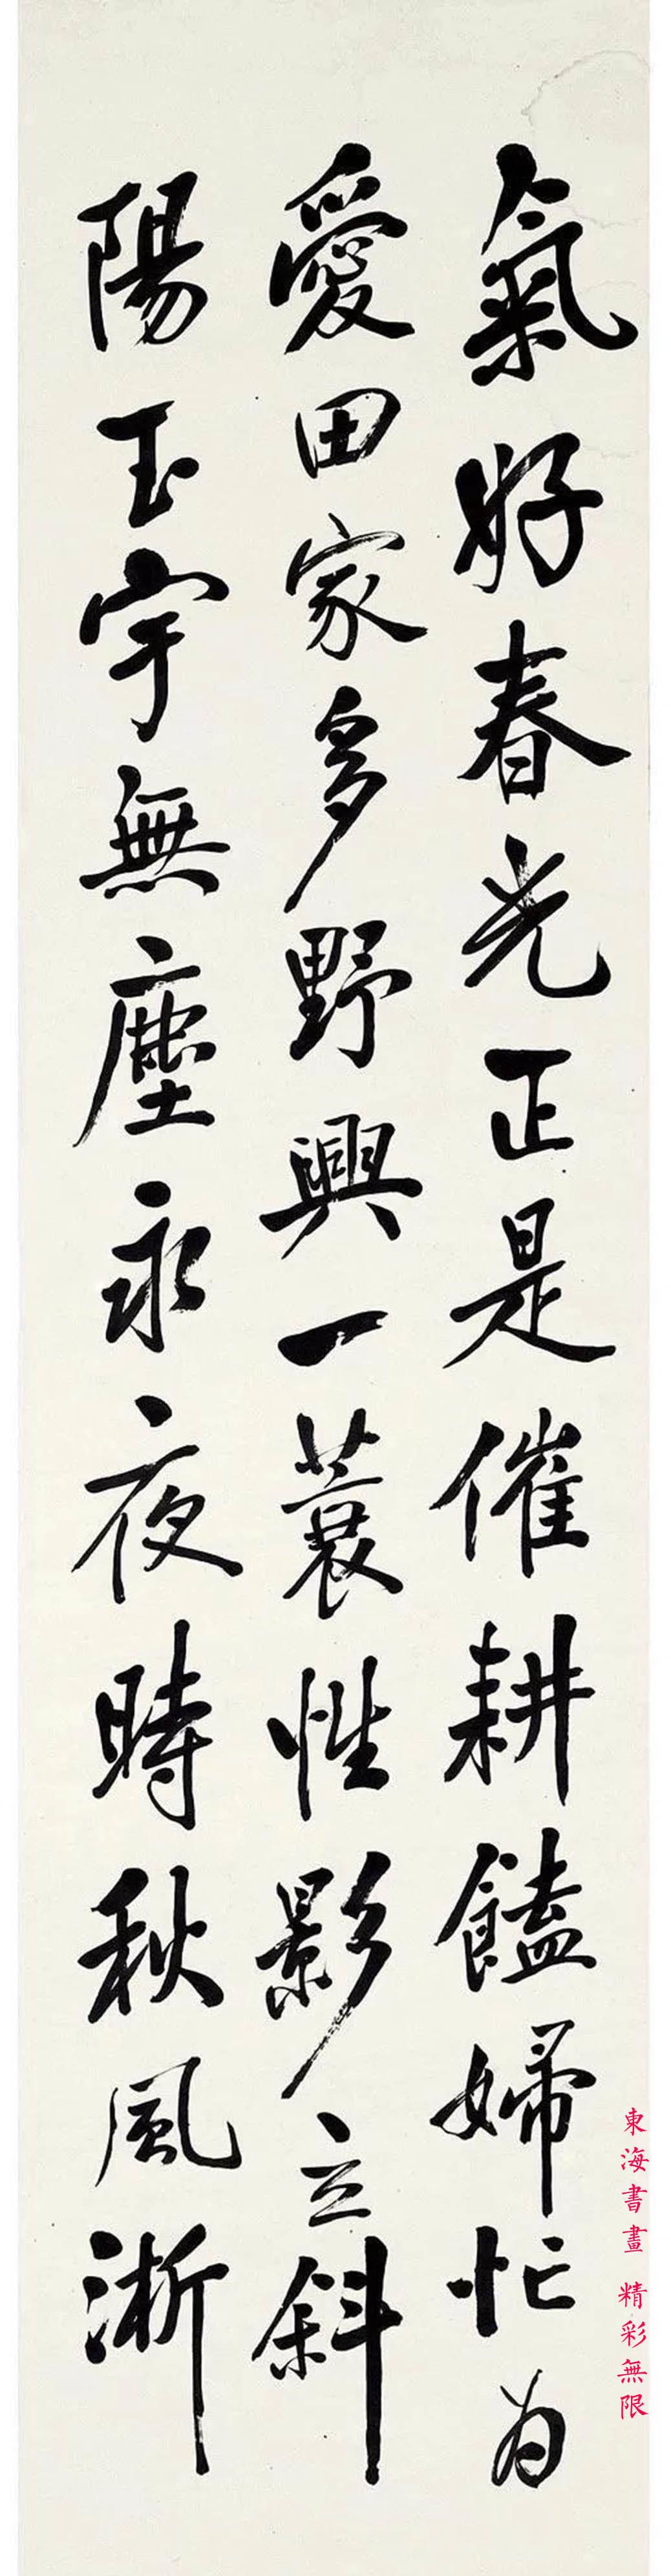 氣好春光正是催耕饁婦忙为
愛田家多野興一蓑惟影立斜
陽玉宇無塵永夜時秋風淅
東海書畫 精彩無限